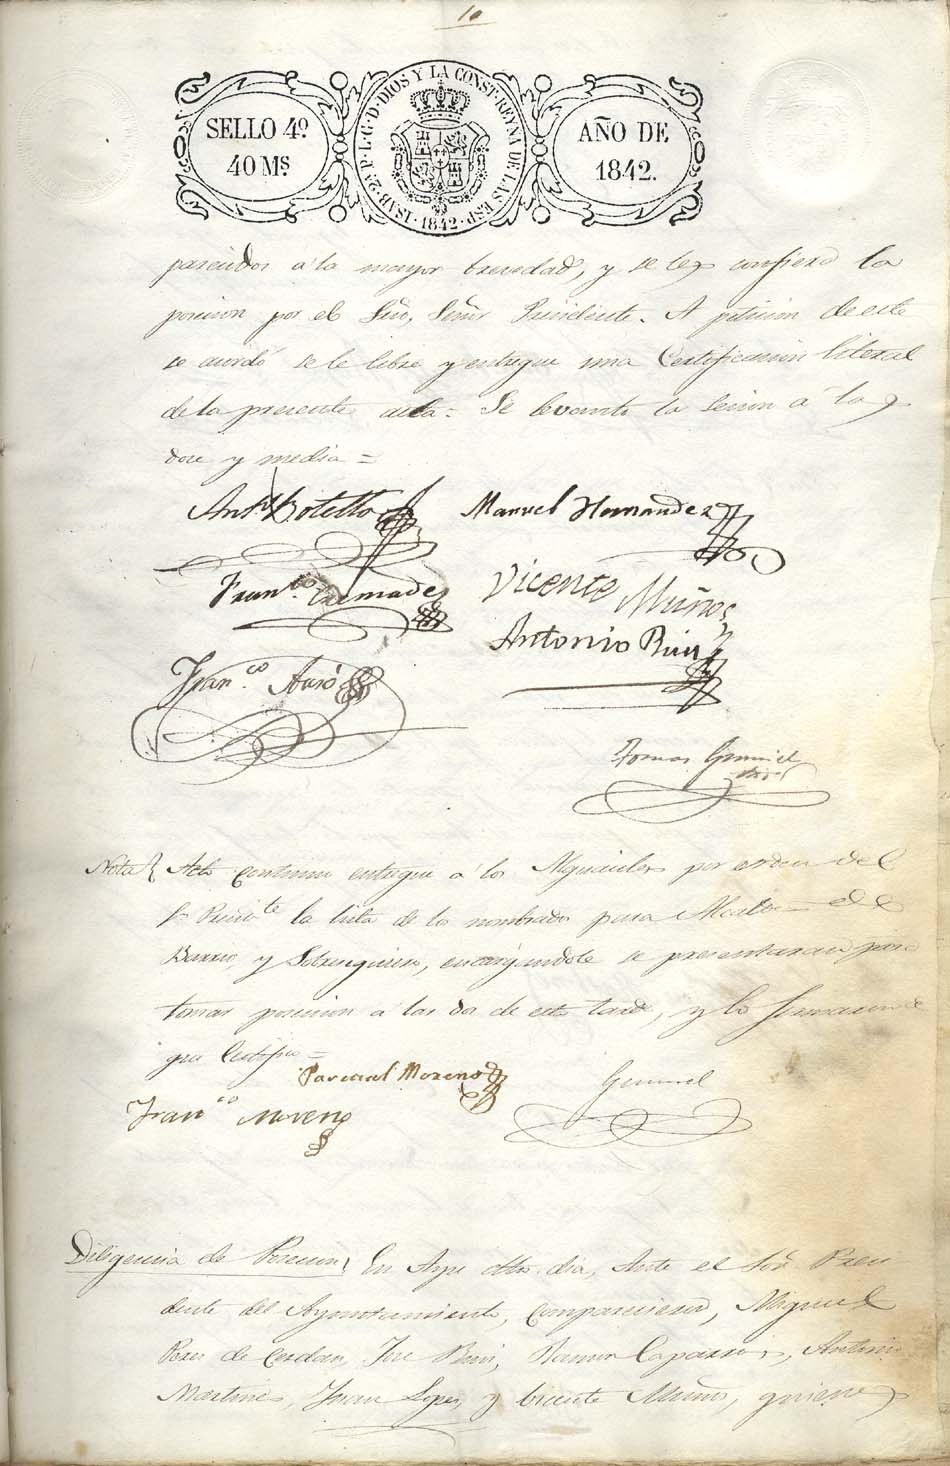 10
SELLO 4º
40 Ms.
ISAB. 2ª P. L. G. D. DIOS Y LA CONST. REYNA DE LAS ESP. 1842.
AÑO DE
1842.
parecidos á la mayor brevedad, y se les confiera la
posesion por el Señor Presidente. A peticion de este
se acordó se le libre y entregue una Certificacion literal
de la presente acta = Se levantó la sesion á las
doce y media =
Antº Botella
Manuel Hernandez
Franco.
Vicente Muños
Antonio Ruiz
Franco. Auró
Tomas Gumiel
Nota Acto continuo entregue á los Alguaciles por orden del
Sr. Presite la lista de los nombrados para Alcaldes de
Barrio, y Sobrequieros, encargandole se presentaran para
tomar posesion á las dos de esta tarde, y lo firmaron de
que Certifico =
Pascual Moreno
Gumiel
Franco Moreno
Diligencia de Posesion En dho. dia, Ante el Sor. Presi
dente del Ayuntamiento, Comparecieron, Miguel
Perez de Cerdan, Jose Ruiz, Ramon Caparros, Antonio
Martines, Juan Lopes, y Vicente Muños, quienes